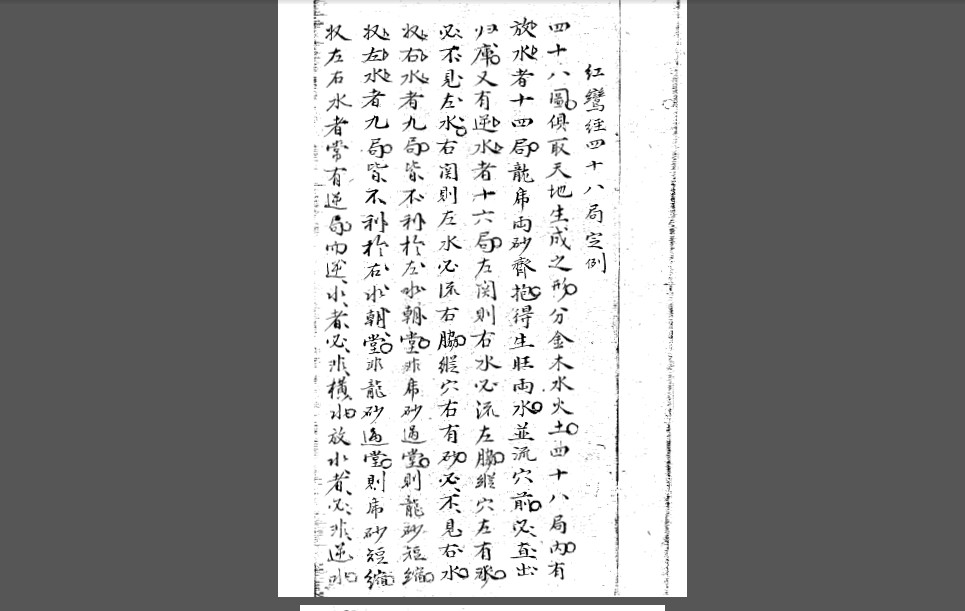 红鸞经四十八局定例
四十八圖俱取天地生成之形分金木水火土四十八局內有
放水者十四局龍席両砂齊抱得生旺両水並流穴前必直出
归庫又有逆水者十六局左関則右水必流左脇縱穴左有
必不見左水右関則左水必流右脇縱穴右有砂必不見右水
収右水者九局皆不利於左水朝堂非席砂過堂則龍砂短縮
収左水者九局皆不利於右水朝堂非龍砂過堂則席砂短縮
収左右水者常有逆局而逆水者必非橫水放水者必非逆水